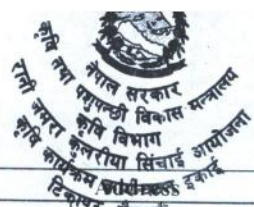 नेपाल सरकार
कृषि तथा पशुपन्छी विकास मन्त्रालय
कृषि विभाग
रानी जमरा कुलरीया सिंचाई आयोजना
कृषि कार्यक्रम इकाई